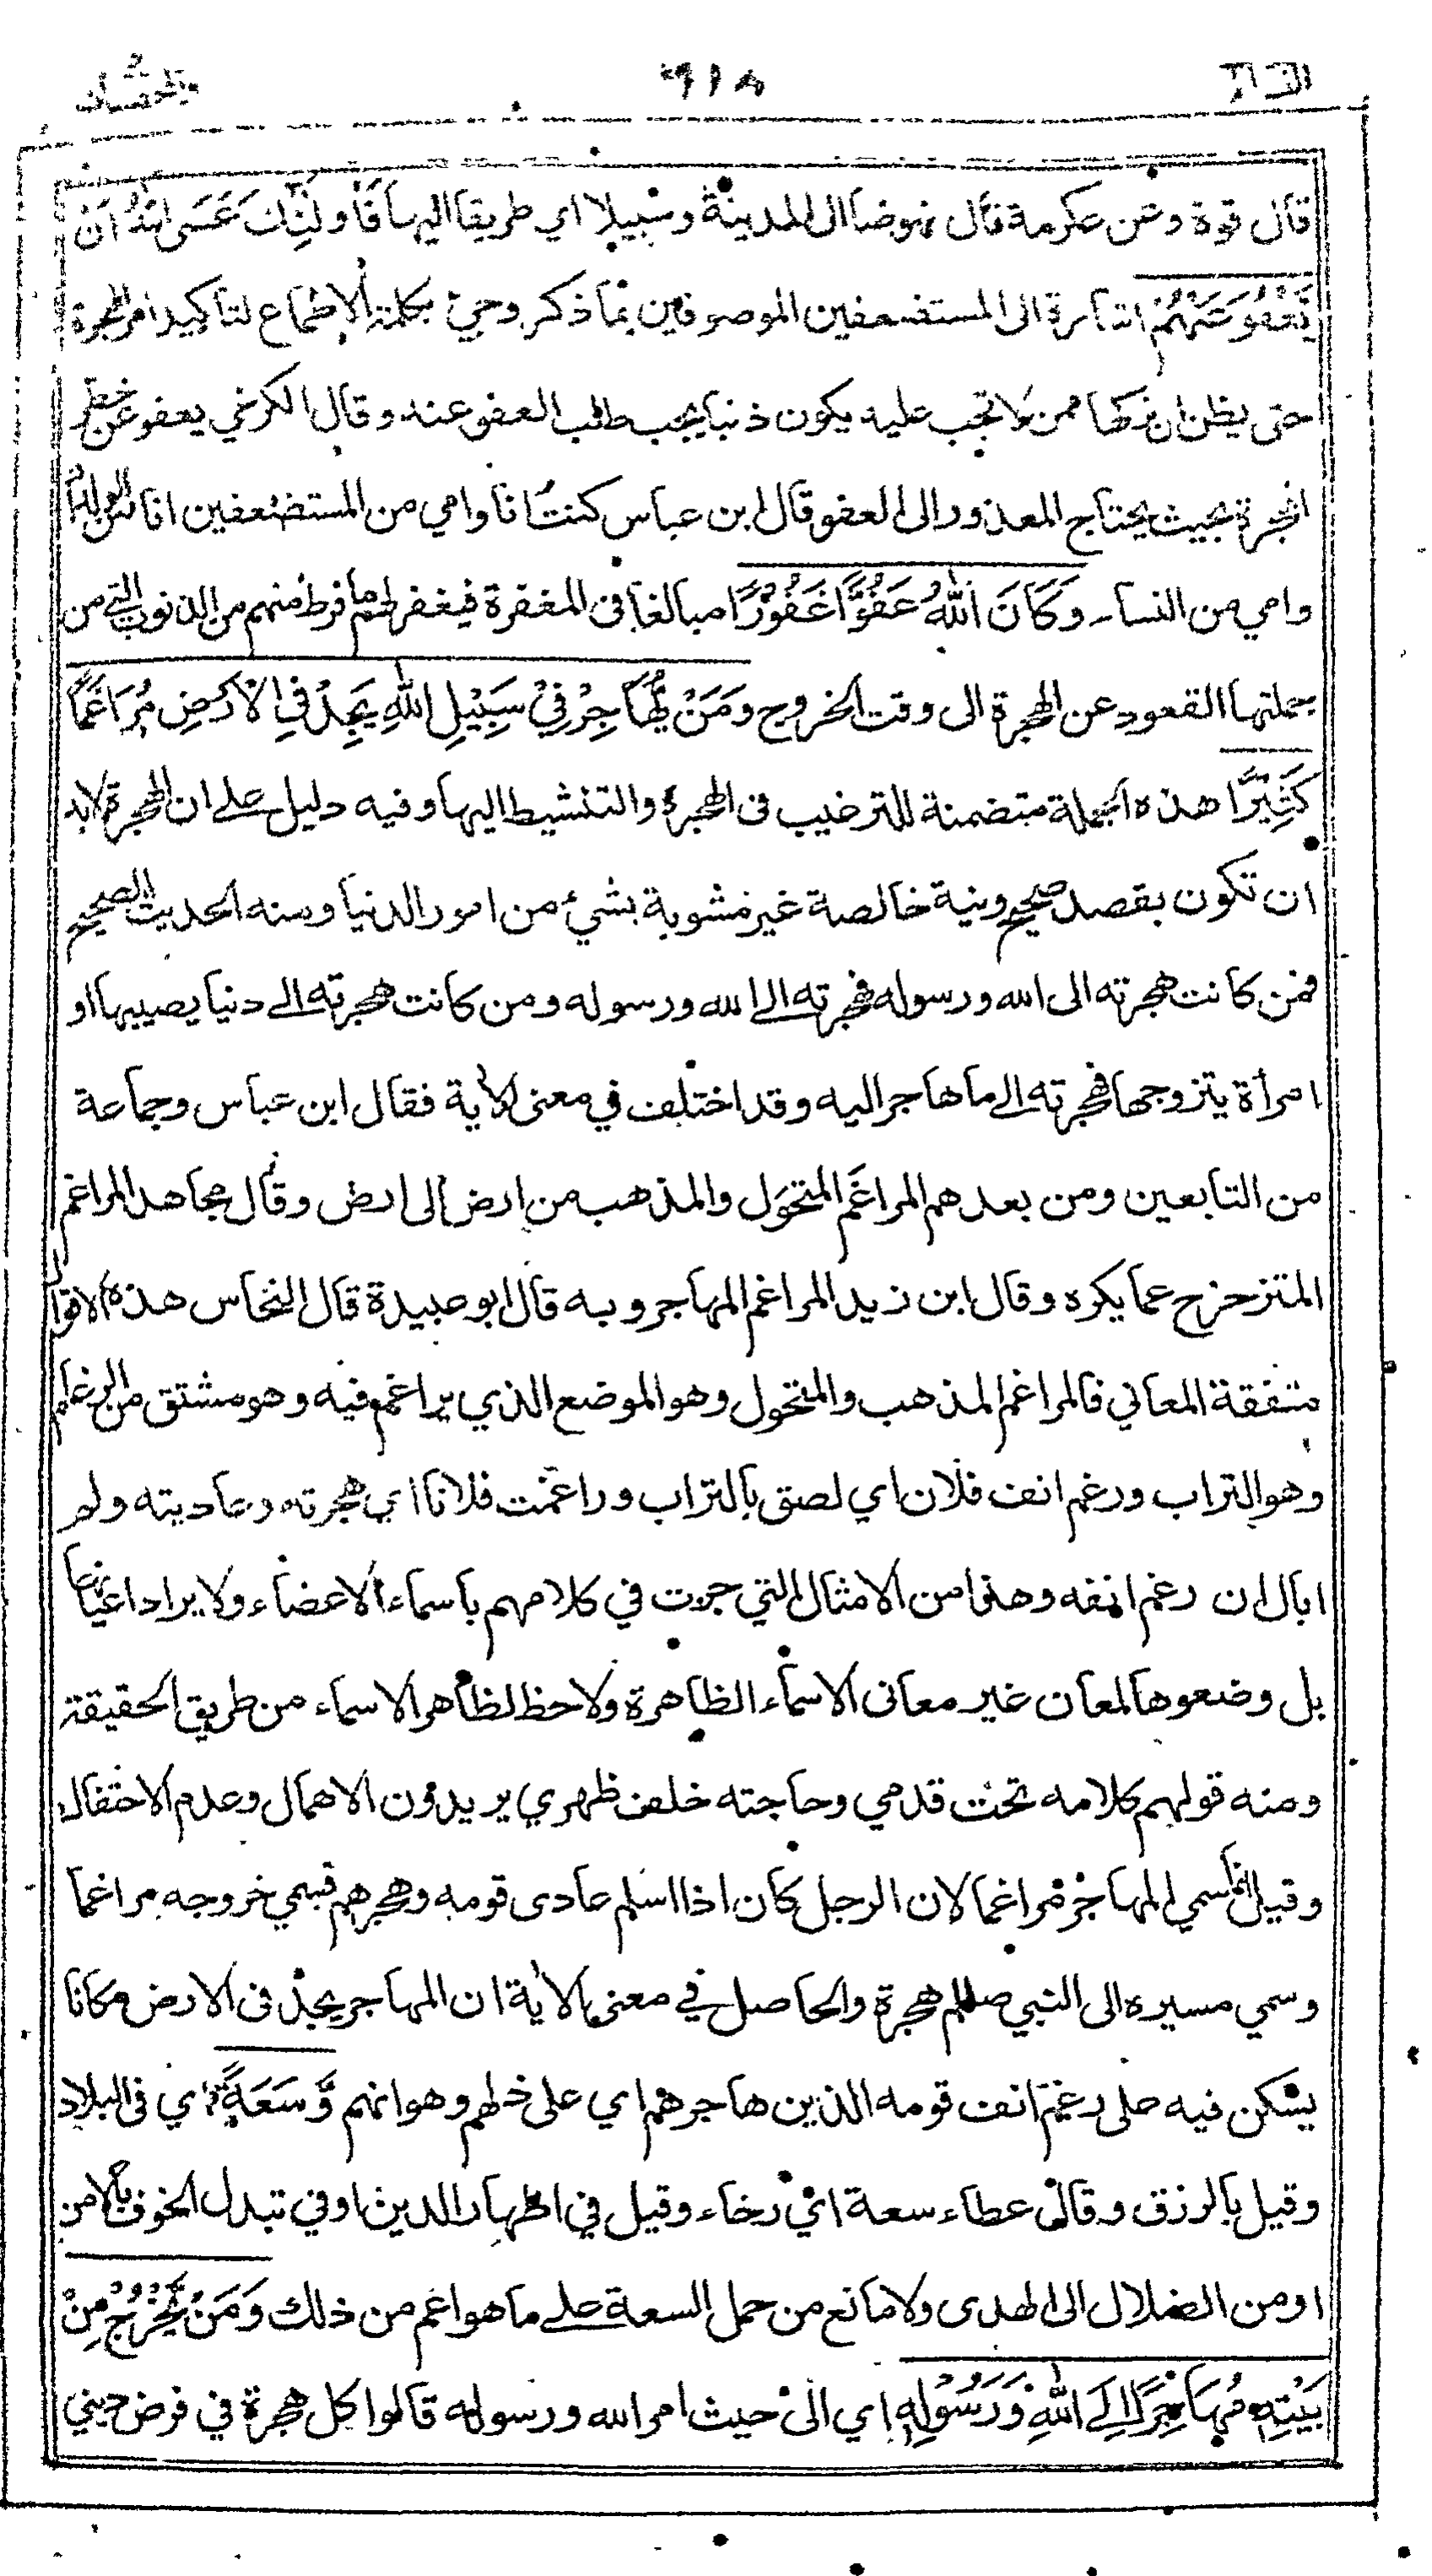 والمحصنات ٩١٨ النساء
قال قوة وعن عكرمة قال نهوضا الى المدينة وسبيلا اي طريقا اليها فَأُولَئِكَ عَسَى اللّٰهُ اَنْ
يَّعْفُوَ عَنْهُمْ اشارة الى المستضعفين الموصوفين بما ذكر وجيئ بكلمة الاطماع لتاكيد امر الهجرة
حتى يظن ان تركها ممن لا تجب عليه يكون ذنبا يجب طلب العفو عنه وقال الكرخي يعفو عن خطر
الهجرة بحيث يحتاج المعذور الى العفو قال ابن عباس كنت انا وامي من المستضعفين انا من الولدان
وامي من النساء وَكَانَ اللّٰهُ عَفُوًّا غَفُوْرًا مبالغا في المغفرة فيغفر لهم ما فرط منهم من الذنوب التي من
جملتها القعود عن الهجرة الى وقت الخروج وَمَنْ يُّهَاجِرْ فِيْ سَبِيْلِ اللّٰهِ يَجِدْ فِي الْاَرْضِ مُرَاغَمًا
كَثِيْرًا هذه الجملة متضمنة للترغيب في الهجرة والتنشيط اليها وفيه دليل على ان الهجرة لابد
ان تكون بقصد صحيح ونية خالصة غير مشوبة بشيئ من امور الدنيا ومنه الحديث الصحيح
فمن كانت هجرته الى الله ورسوله فهجرته الى الله ورسوله ومن كانت هجرته الى دنيا يصيبها او
امرأة يتزوجها فهجرته الى ما هاجر اليه وقد اختلف في معنى الاية فقال ابن عباس وجماعة
من التابعين ومن بعدهم المراغم المتحول والمذهب من ارض الى ارض وقال مجاهد المراغم
المتزحزح عما يكره وقال ابن زيد المراغم المهاجر وبه قال ابو عبيدة قال النحاس هذه الاقوال
متفقة المعاني فالمراغم المذهب والمتحول وهو الموضع الذي يراغم فيه وهو مشتق من الرغام
وهو التراب ورغم انف فلان اي لصق بالتراب وراغمت فلانا اي هجرته وعاديته ولم
ابال ان رغم انفه وهذا من الامثال التي جرت في كلامهم باسماء الاعضاء ولا يراد اعيانها
بل وضعوها لمعان غير معاني الاسماء الظاهرة ولا حظ لظاهر الاسماء من طريق الحقيقة
ومنه قولهم كلامه تحت قدمي وحاجته خلف ظهري يريدون الاهمال وعدم الاحتفال
وقيل انما سمي المهاجر مراغما لان الرجل كان اذا اسلم عادى قومه وهجرهم فسمي خروجه مراغما
وسمي مسيره الى النبي صللم هجرة والحاصل في معنى الاية ان المهاجر يجد في الارض مكانا
يسكن فيه على رغم انف قومه الذين هاجرهم اي على ذلهم وهوانهم وَّسَعَةً اي في البلاد
وقيل بالرزق وقال عطاء سعة اي رخاء وقيل في اظهار الدين او في تبدل الخوف بالامن
او من الضلال الى الهدى ولا مانع من حمل السعة على ما هو اعم من ذلك وَمَنْ يَّخْرُجْ مِنْ
بَيْتِهٖ مُهَاجِرًا اِلَى اللّٰهِ وَرَسُوْلِهٖ اي الى حيث امر الله ورسوله قالوا كل هجرة في فرض ديني